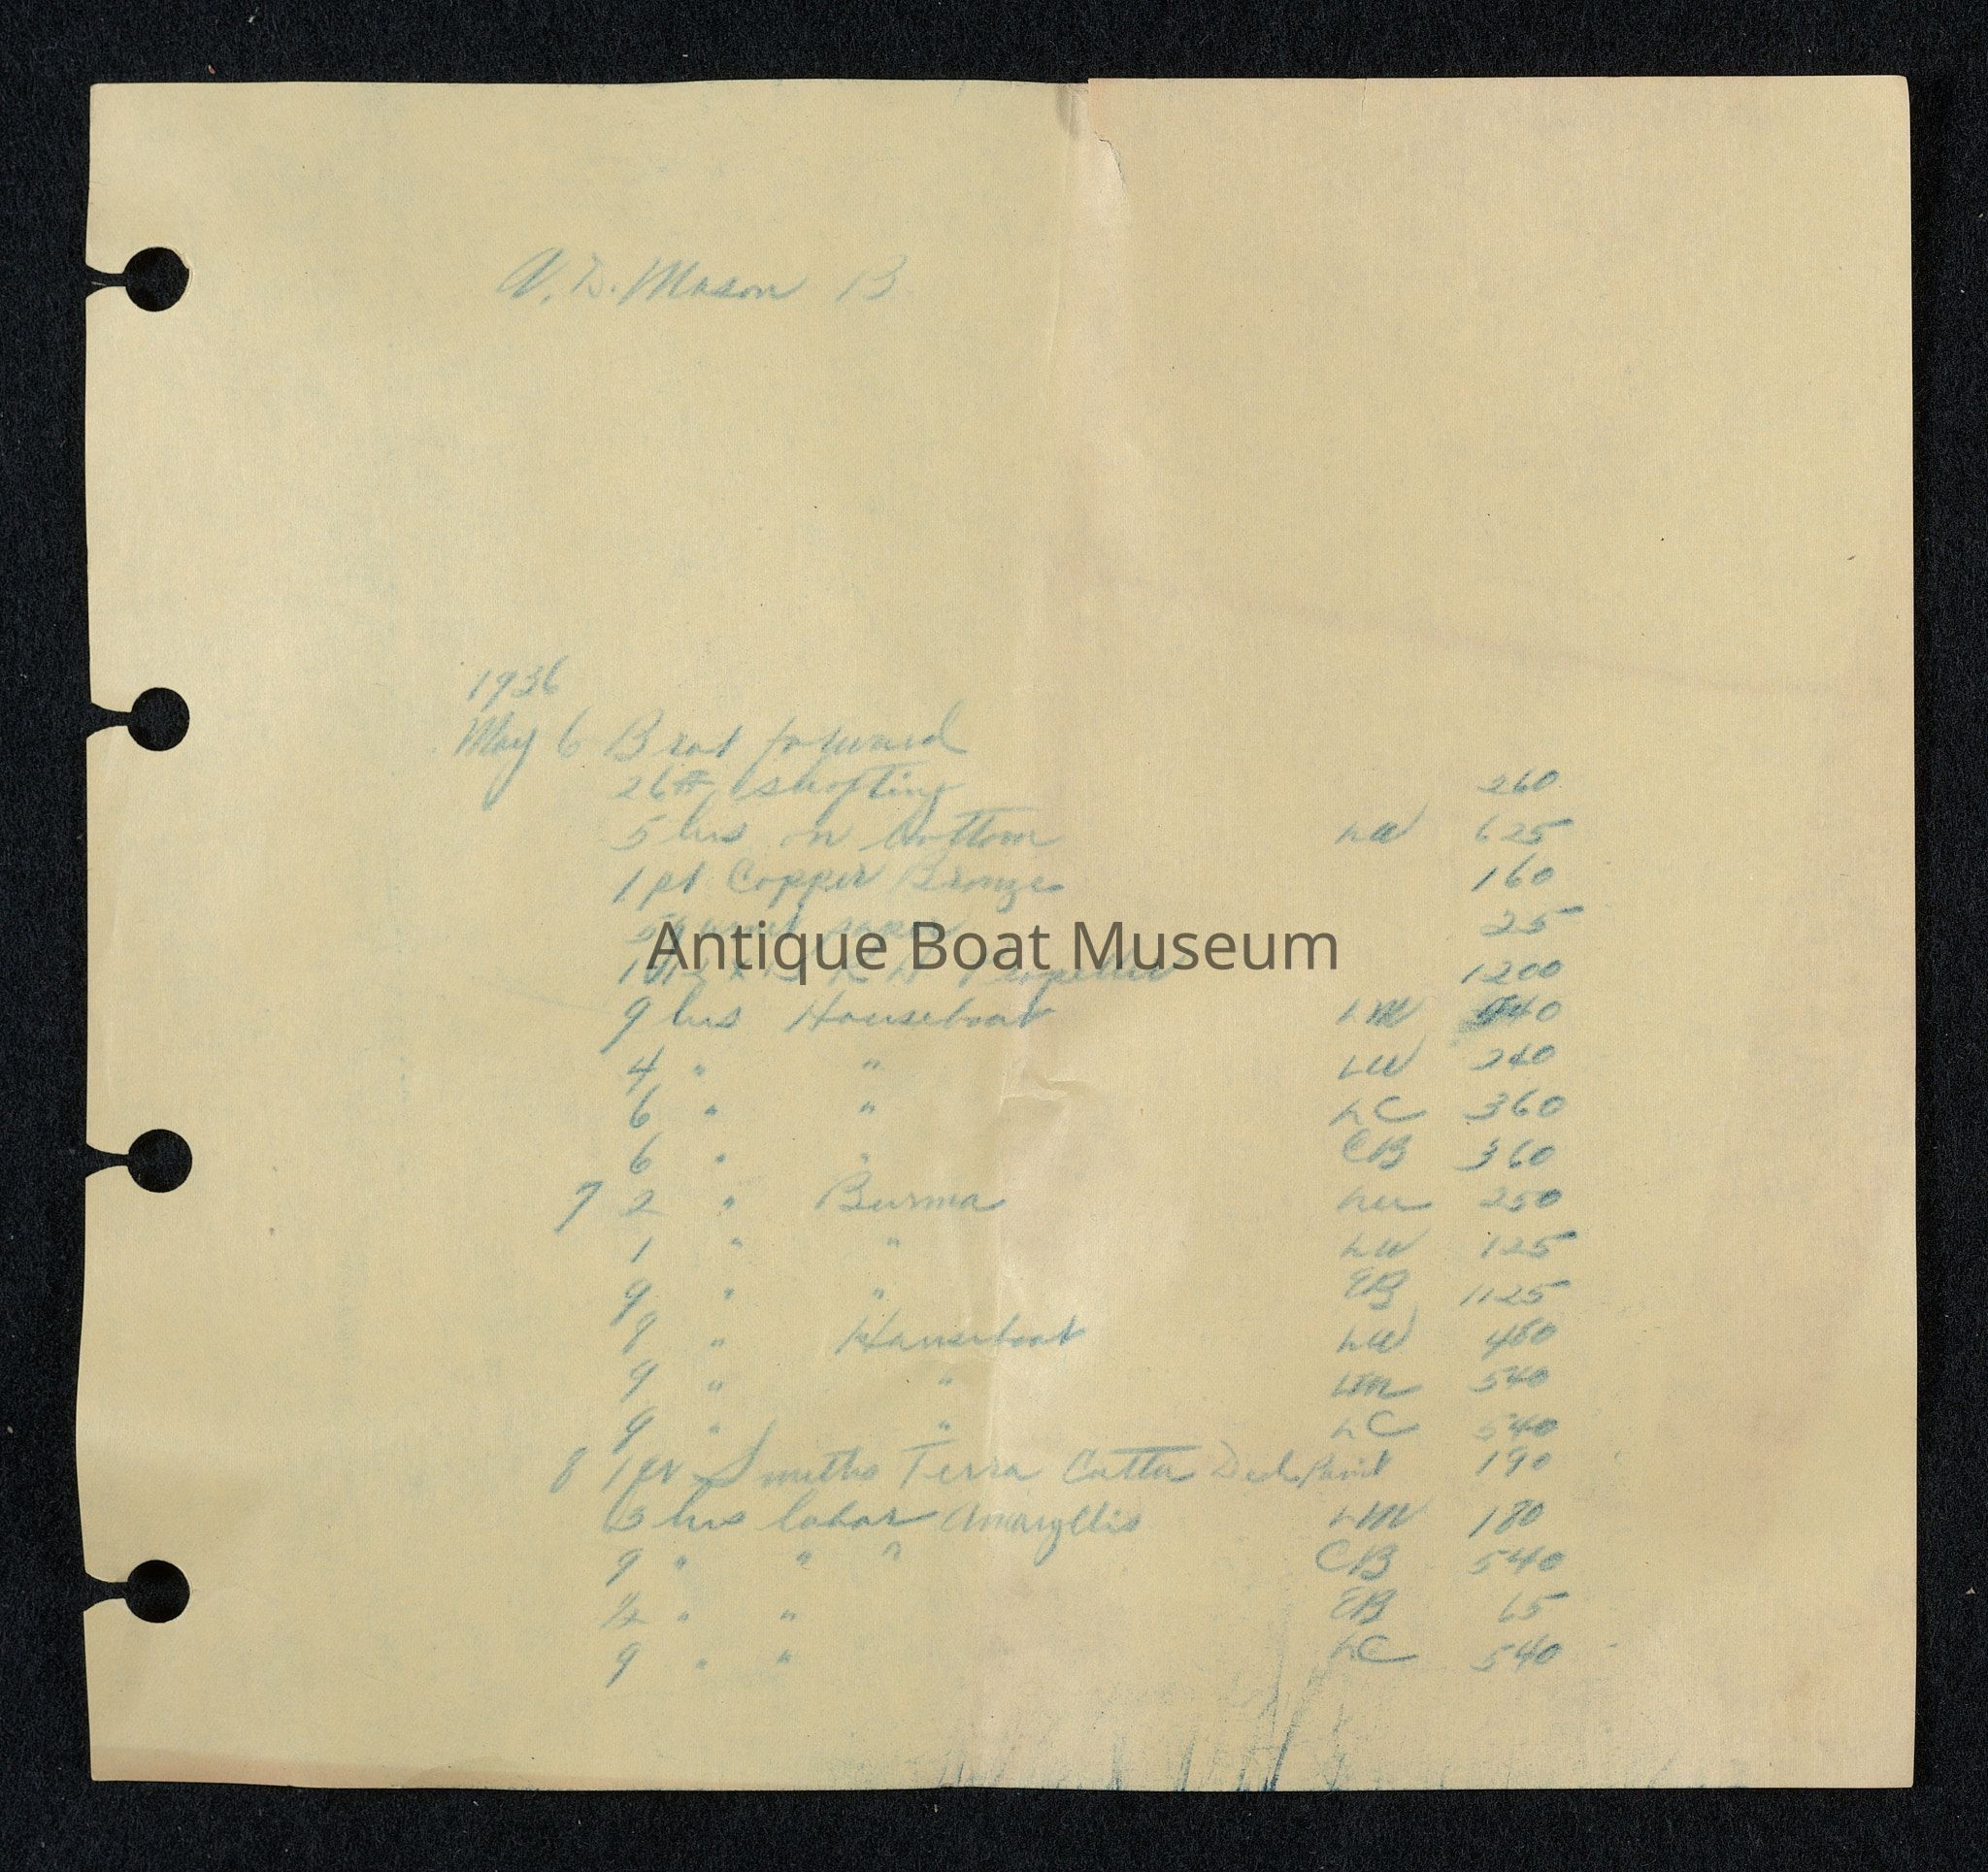 A. D. Mason B
1936
May 6 Brot forward
26# shafting 260
5 hrs on bottom LW 625
1 pt Copper Bronze 160
25
Antique Boat Museum
1 Propeller 1200
9 hrs Houseboat LM 540
4 " " LW 240
6 " " LC 360
6 " " CB 360
7 2 " Burma 250
1 " " LW 125
9 " " EB 1125
8 " Houseboat LW 480
9 " " LM 540
9 " " LC 540
8 1 qr Smiths Terra Cotta Deck Paint 190
3 hrs labor Amaryllis LM 180
9 " " " CB 540
½ " " EB 65
9 " " LC 540